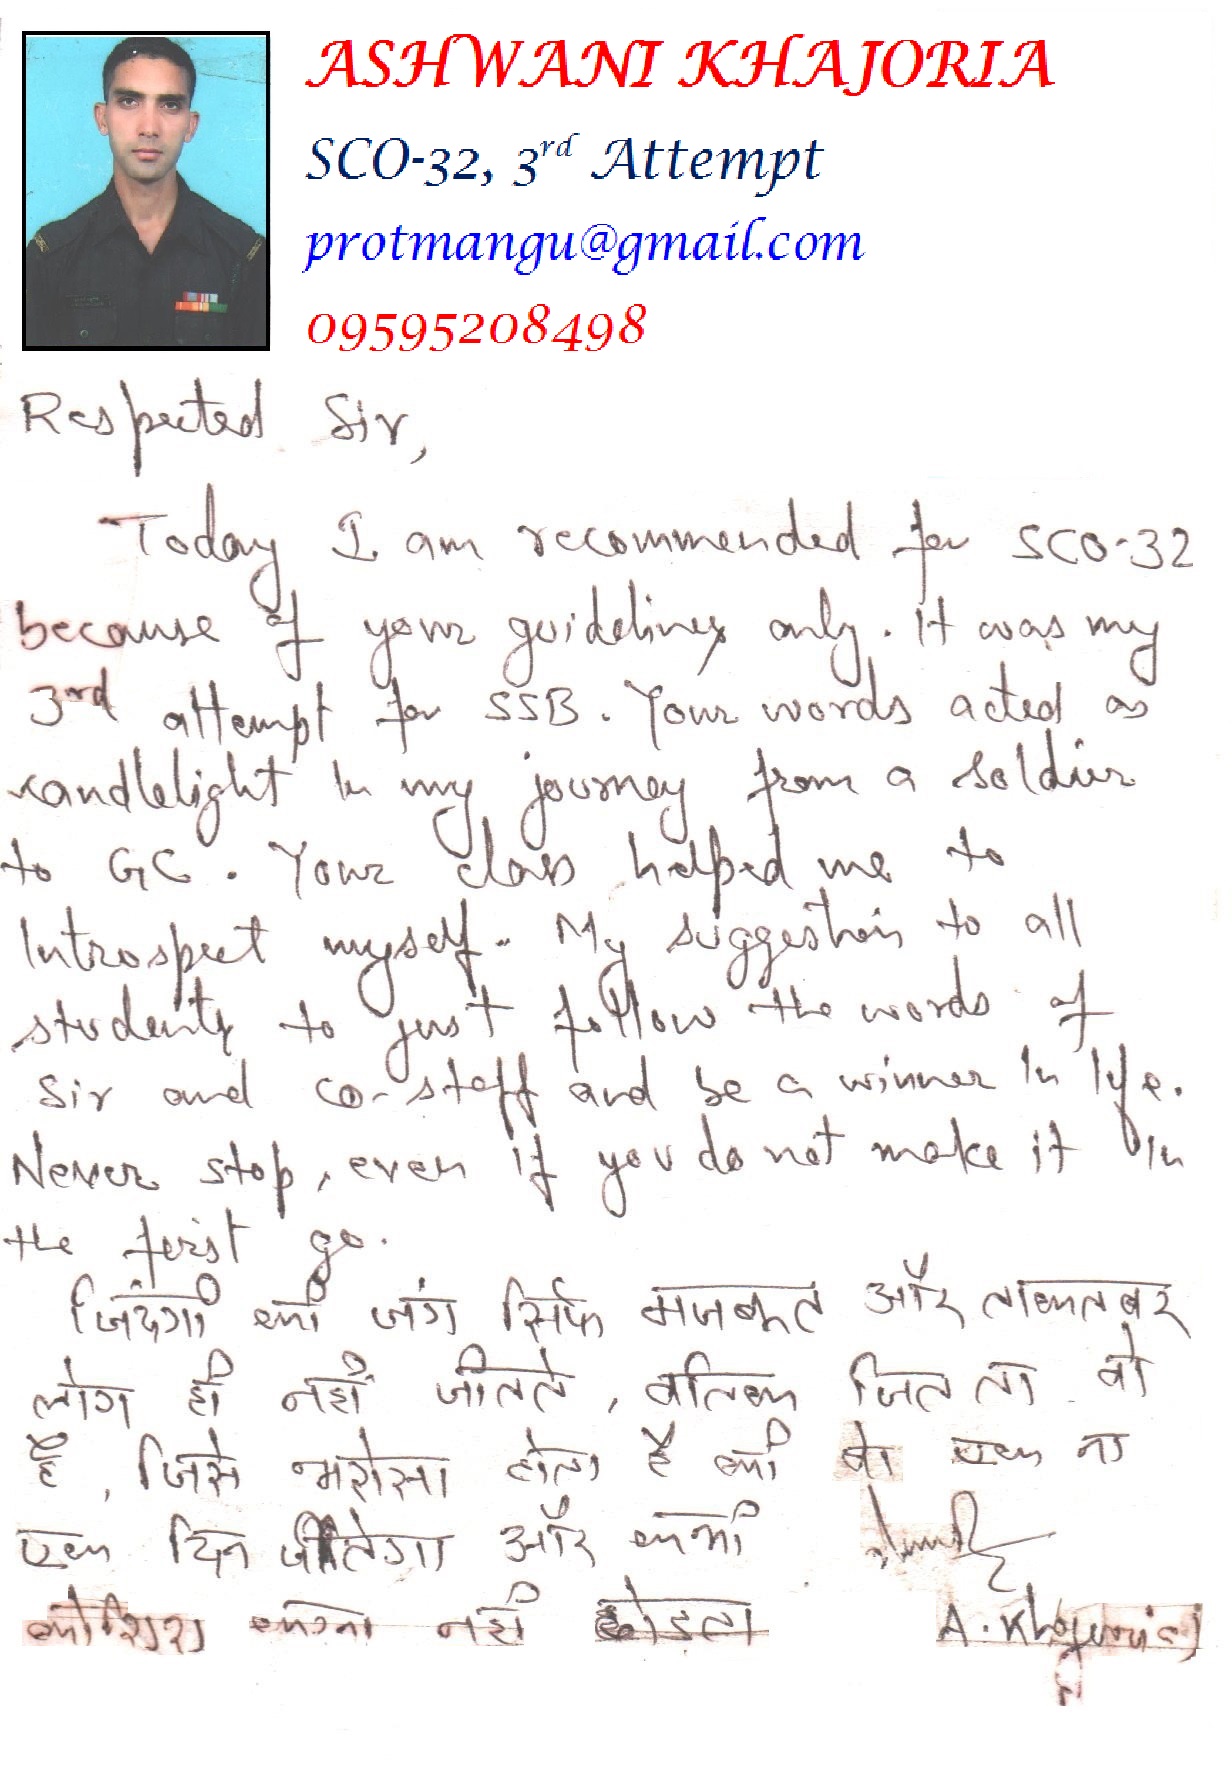 ASHWANI KHAJORIA
SCO-32, 3rd Attempt
protmangu@gmail.com
09595208498
Respected Sir,
Today I am recommended for SCO-32
because of your guidelines only. It was my
3rd attempt for SSB. Your words acted as
candlelight in my journey from a soldier
to GC. Your class helped me to
Introspect myself. My suggestion to all
students to just follow the words of
Sir and co-staff and be a winner in life.
Never stop, even if you do not make it in
the first go.
जिंदगी की जंग सिर्फ मजबूत और ताकतवर
लोग ही नहीं जीतते, बल्कि जितता वो
है, जिसे भरोसा होता है की वो एक ना
एक दिन जीतेगा और कभी
कोशिश करना नहीं छोडता
A. Khajuria